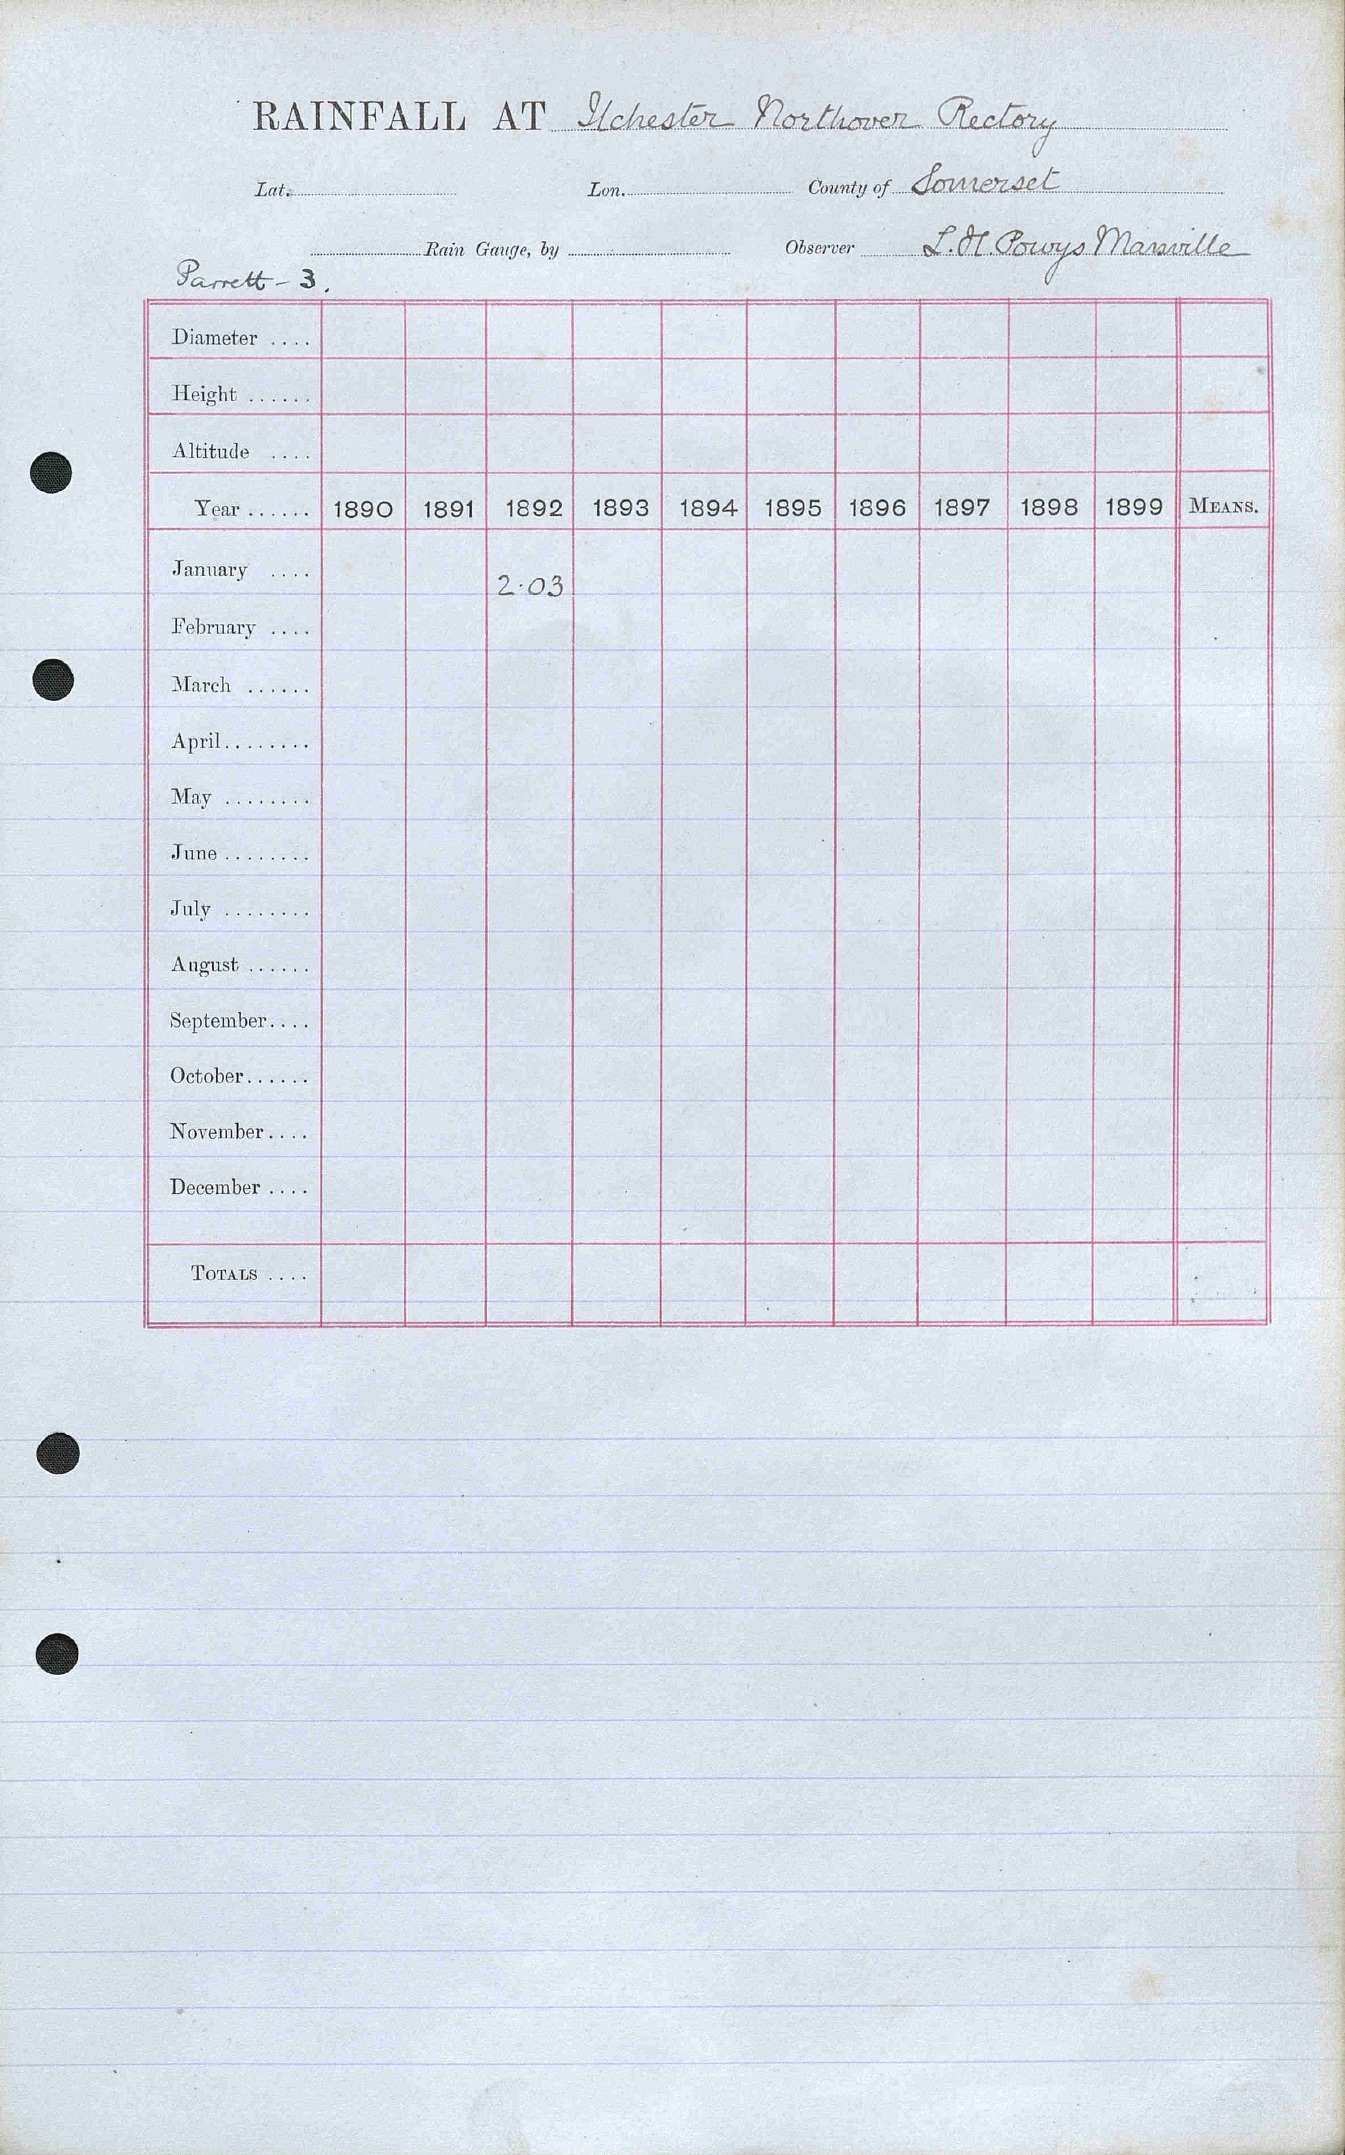 RAINFALL AT Ilchester Northover Rectory
Lat. Lon. County of Somerset
Rain Gauge, by Observer L.H. Powys Marsville
Parrett - 3.
Diameter ....
Height ......
Altitude ....
Year ...... 1890 1891 1892 1893 1894 1895 1896 1897 1898 1899 MEANS.
January .... 2.03
February ....
March ......
April........
May ........
June ........
July ........
August ......
September....
October......
November....
December ....
TOTALS ....